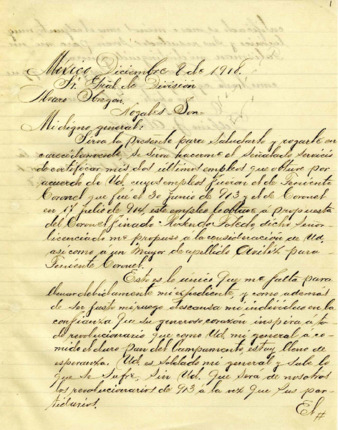 México Diciembre 8 de 1918.
Sr. Gral de División
Alvaro Obregón.
Nogales Son
Mi digno general:
Sirva la presente para saludarlo y rogarle en
carecidamente se sirva hacerme el señalado servicio
de certificar mis dos últimos empleos que obtuve por
acuerdo de Ud. cuyos empleos fueron el de Teniente
Coronel que fué el 30 junio de 913, y el de Coronel
en 17 julio de 914, este empleo lo obtuve á propuesta
del Coronel finado dicho señor
licenciado me propuso á la consideración de Ud.
así como á un Mayor de apellido para
Teniente Coronel.
Esto es lo único que me falta para
llenar debidamente mi expediente, y como además
de ser justo mi ruego descansa me individuo en la
confianza que su generoso corazón inspira á to
do revolucionario que como Ud. mi general á co
mido el duro pan del Campamento, estoy lleno de
esperanza. Ud. es soldado mi general y sabe lo
que se sufre, sin Ud. que será de nosotros
los revolucionarios de 913 á la vez que sus par
tidarios.